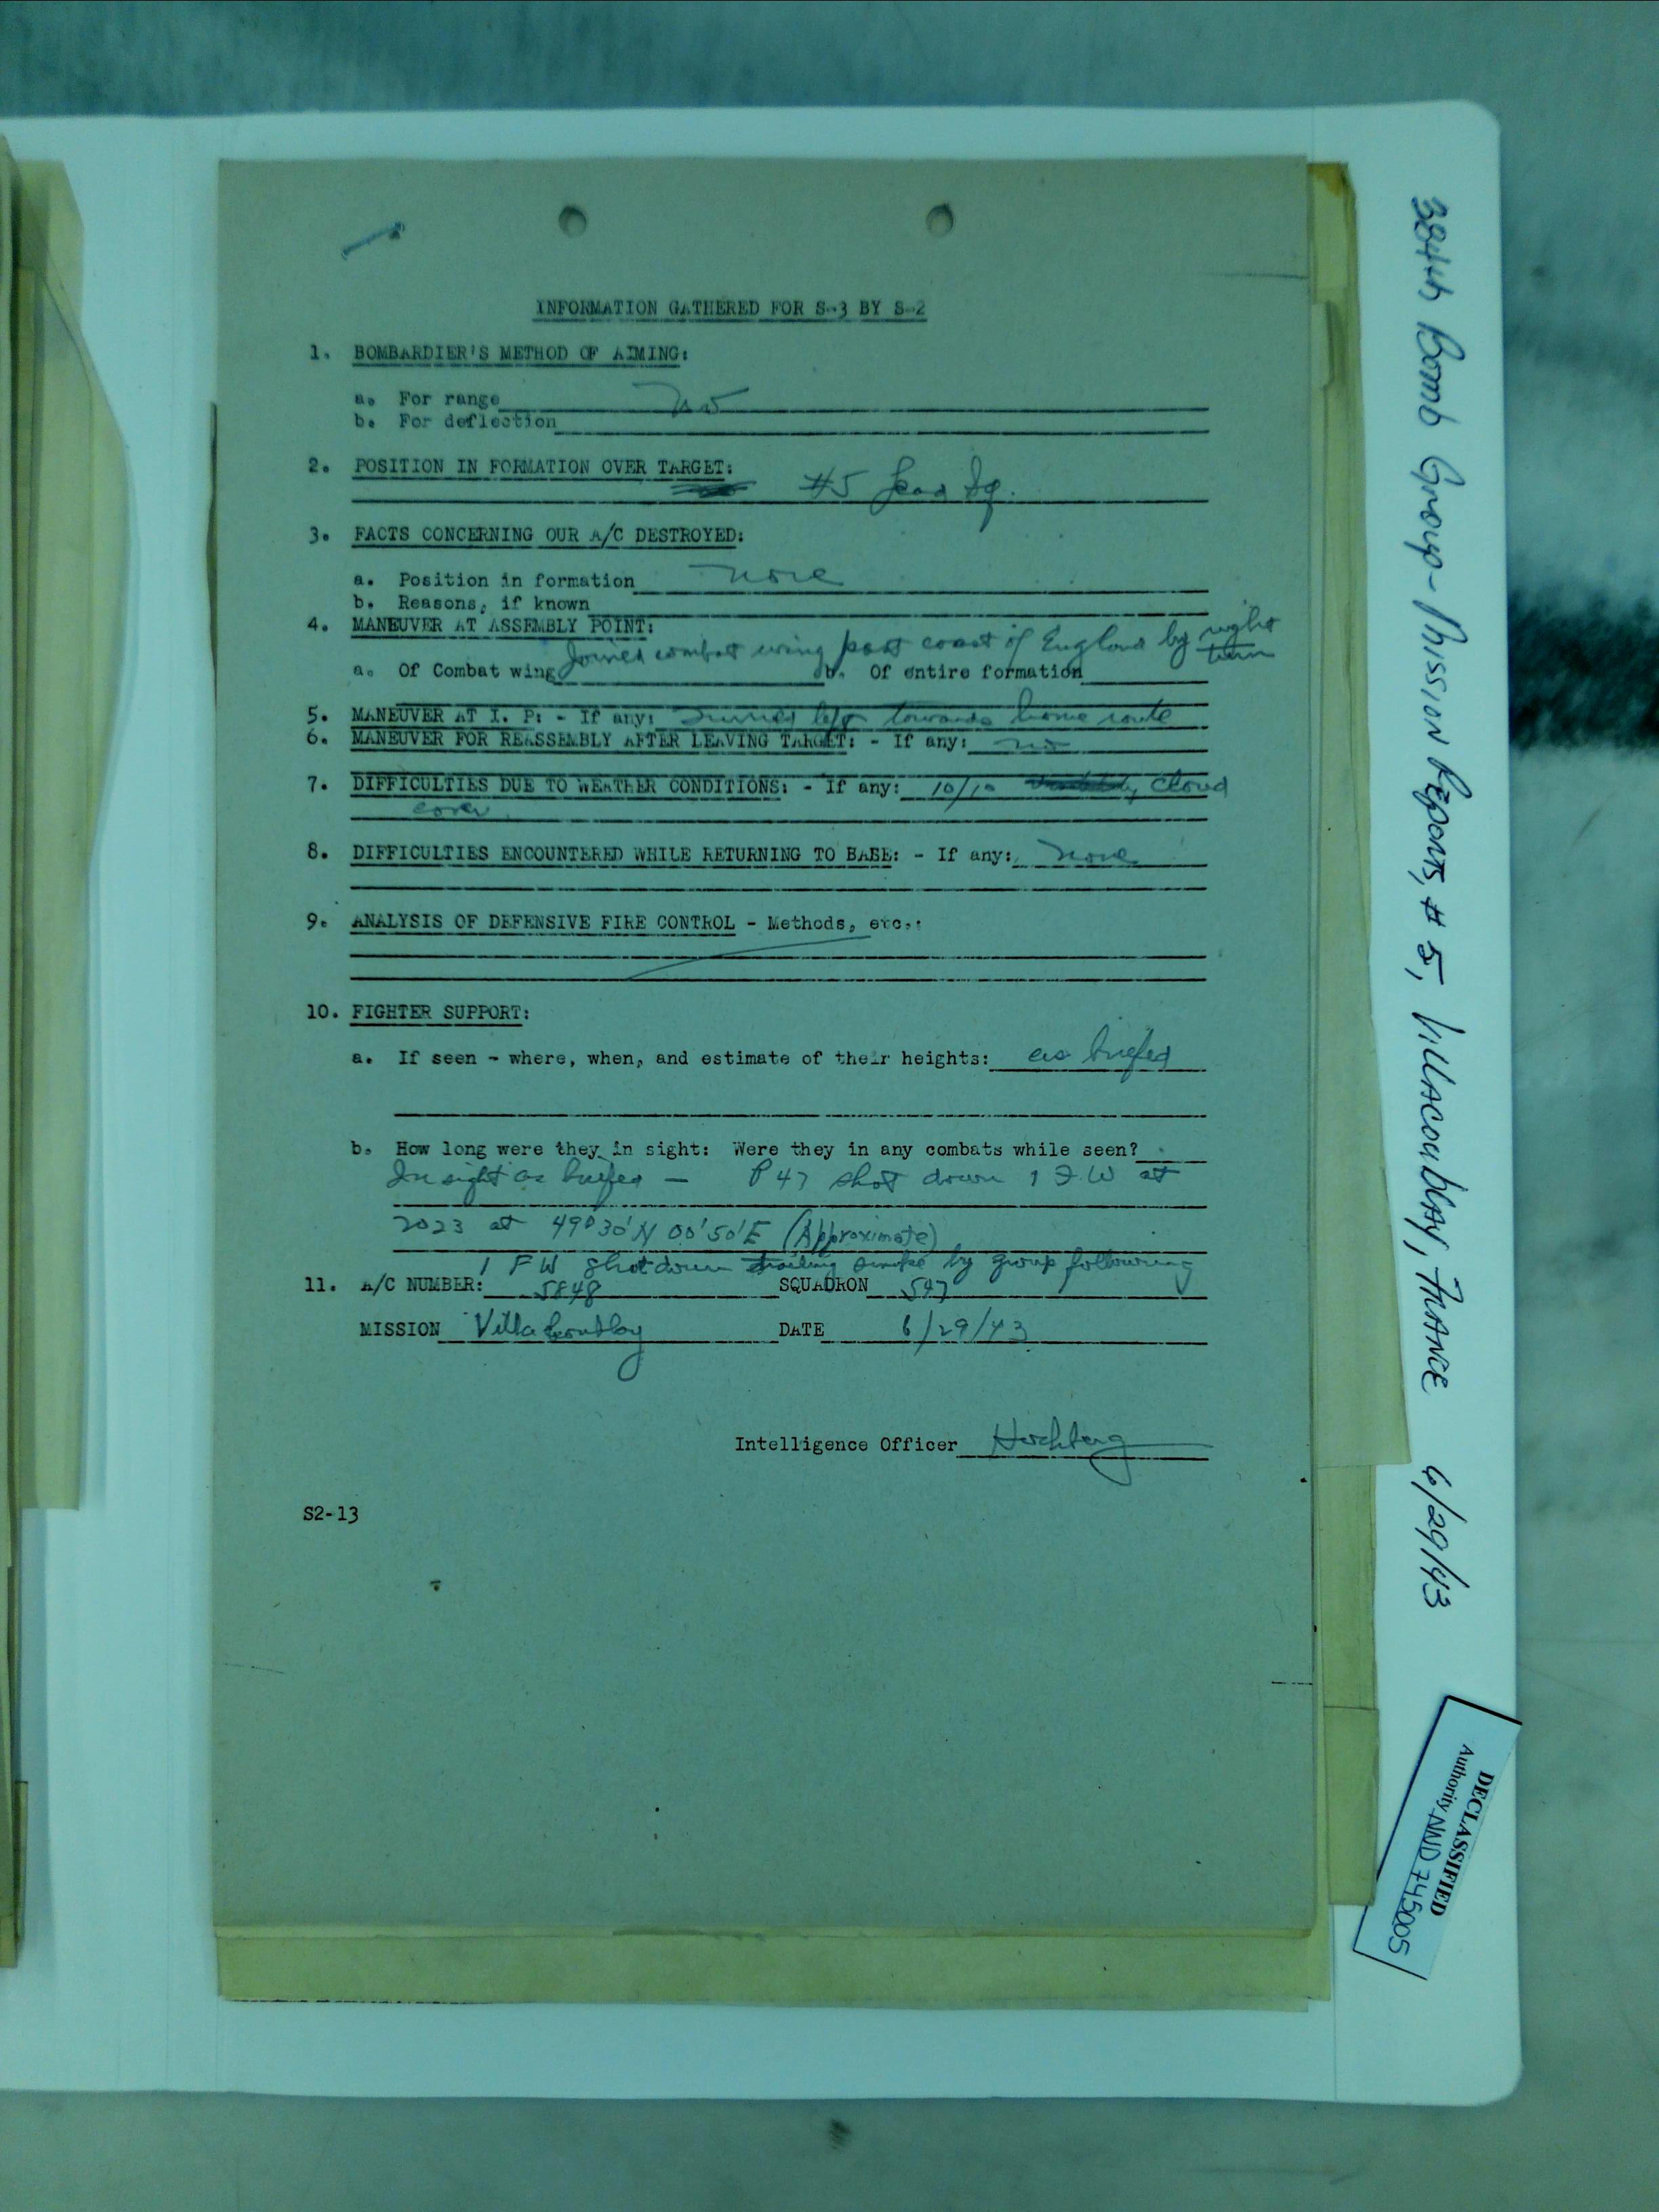 INFORMATION GATHERED FOR S-3 BY S-2
1. BOMBARDIER'S METHOD OF AIMING:
a. For range no
b. For deflection
2. POSITION IN FORMATION OVER TARGET:
#5 Lead Sq.
3. FACTS CONCERNING OUR A/C DESTROYED:
a. Position in formation none
b. Reasons, if known
4. MANEUVER AT ASSEMBLY POINT:
Joined combat wing past coast of England by right turn
a. Of Combat wing b. Of entire formation
5. MANEUVER AT I. P: - If any: Turned left towards home route
6. MANEUVER FOR REASSEMBLY AFTER LEAVING TARGET: - If any: no
7. DIFFICULTIES DUE TO WEATHER CONDITIONS: - If any: 10/10 cloud
cover
8. DIFFICULTIES ENCOUNTERED WHILE RETURNING TO BASE: - If any: none
9. ANALYSIS OF DEFENSIVE FIRE CONTROL - Methods, etc.:
10. FIGHTER SUPPORT:
a. If seen - where, when, and estimate of their heights: as briefed
b. How long were they in sight: Were they in any combats while seen?
In sight as briefed - P47 shot down 1 F.W at
2023 at 49°30'N 00'50'E (Approximate)
1 FW shot down trailing smoke by group following
11. A/C NUMBER: 5848 SQUADRON 547
MISSION Villa Coublay DATE 6/29/43
Intelligence Officer Hochberg
S2-13
384th Bomb Group - Mission Reports, #5, Villacoublay, France 6/29/43
DECLASSIFIED
Authority NND 745005